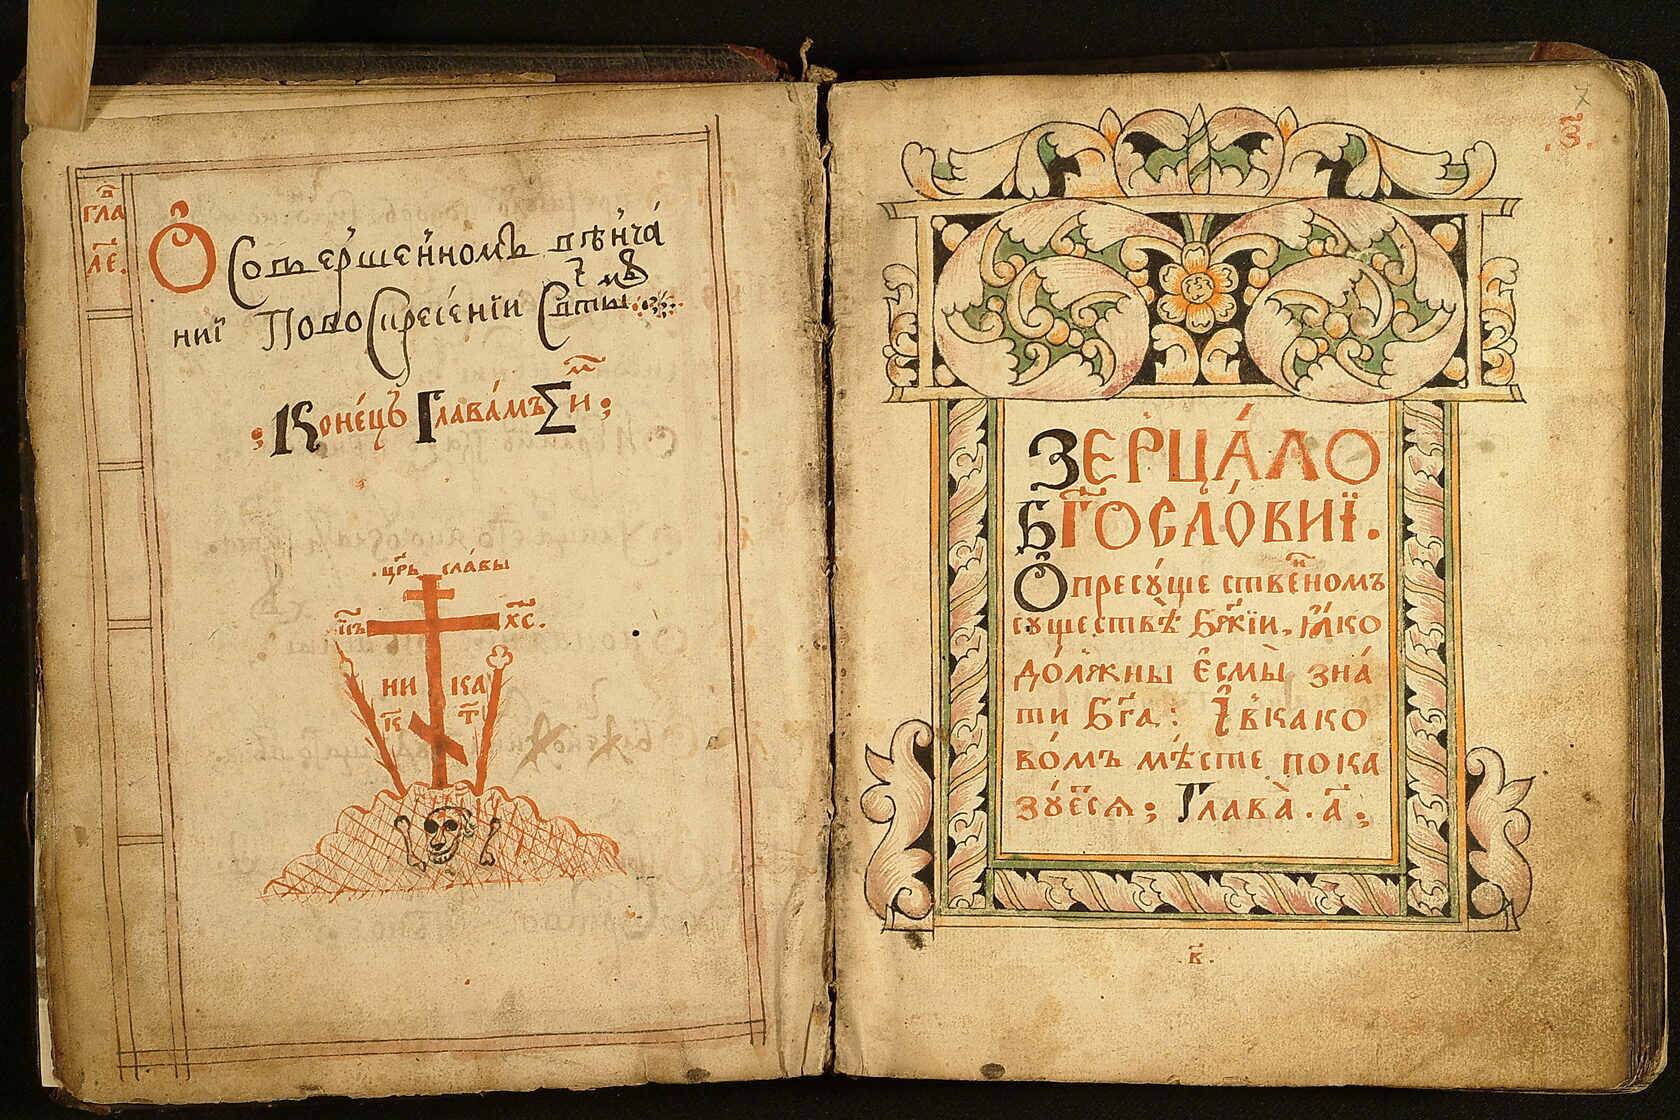 гла
ле.
О Совершенномъ вѣнча
нии По воскресенїи Свты
Коне́цъ Глава́мъ Си҃м
.цр҃ь сла́вы
і҃съ х҃с.
ни ка
к҃ т҃
7
.з҃.
ЗЕРЦА́ЛО
БГ҃ОСЛО́ВИЇ.
О пресу́щественномъ
существѣ̀ Бж҃їи, ꙗ҆́кѡ
до́лжны є҆смы̀ зна́
ти Бг҃а: И҆ в̾како
во́мъ мѣ́сте пока
зꙋ́етсѧ; Глава̀. а҃;
.в҃.